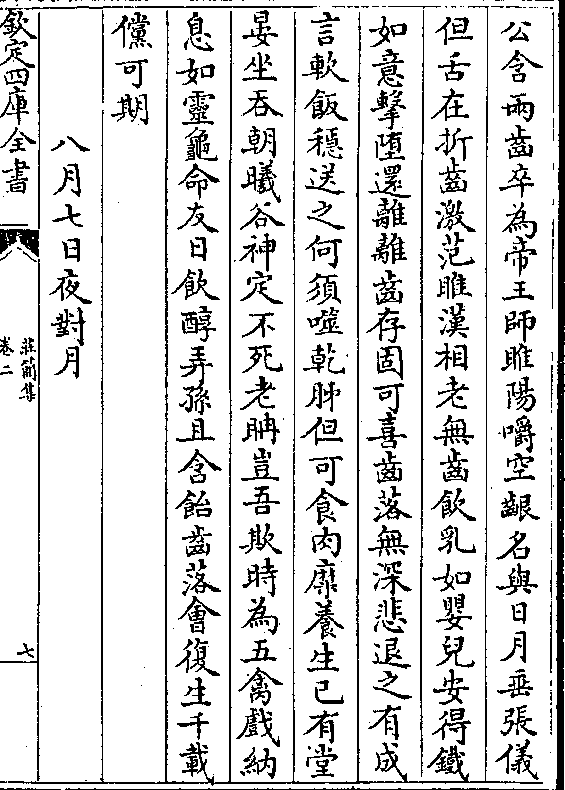 公含兩齒卒為帝王師睢陽嚼空齦名與日月垂張儀
但舌在折齒激范睢漢相老無齒飲乳如嬰兒安得鐵
如意擊墮還離離齒存固可喜齒落無深悲退之有成
言軟飯穩送之何須噬乾胏但可食肉糜養生已有堂
晏坐吞朝曦谷神定不死老聃豈吾欺時為五禽戲納
息如靈龜命友日飲醇弄孫且含飴齒落會復生千載
儻可期
八月七日夜對月
欽定四庫全書
莊簡集
卷二
七